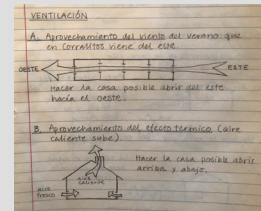 VENTILACIÓN
A. Aprovechamiento del viento del verano que
en Corralitos viene del este.
OESTE ESTE
Hacer la casa posible abrir del este
hacia el oeste.
B. Aprovechamiento del efecto termico (aire
caliente sube)
Hacer la casa posible abrir
arriba y abajo.
aire
caliente
aire
fresco